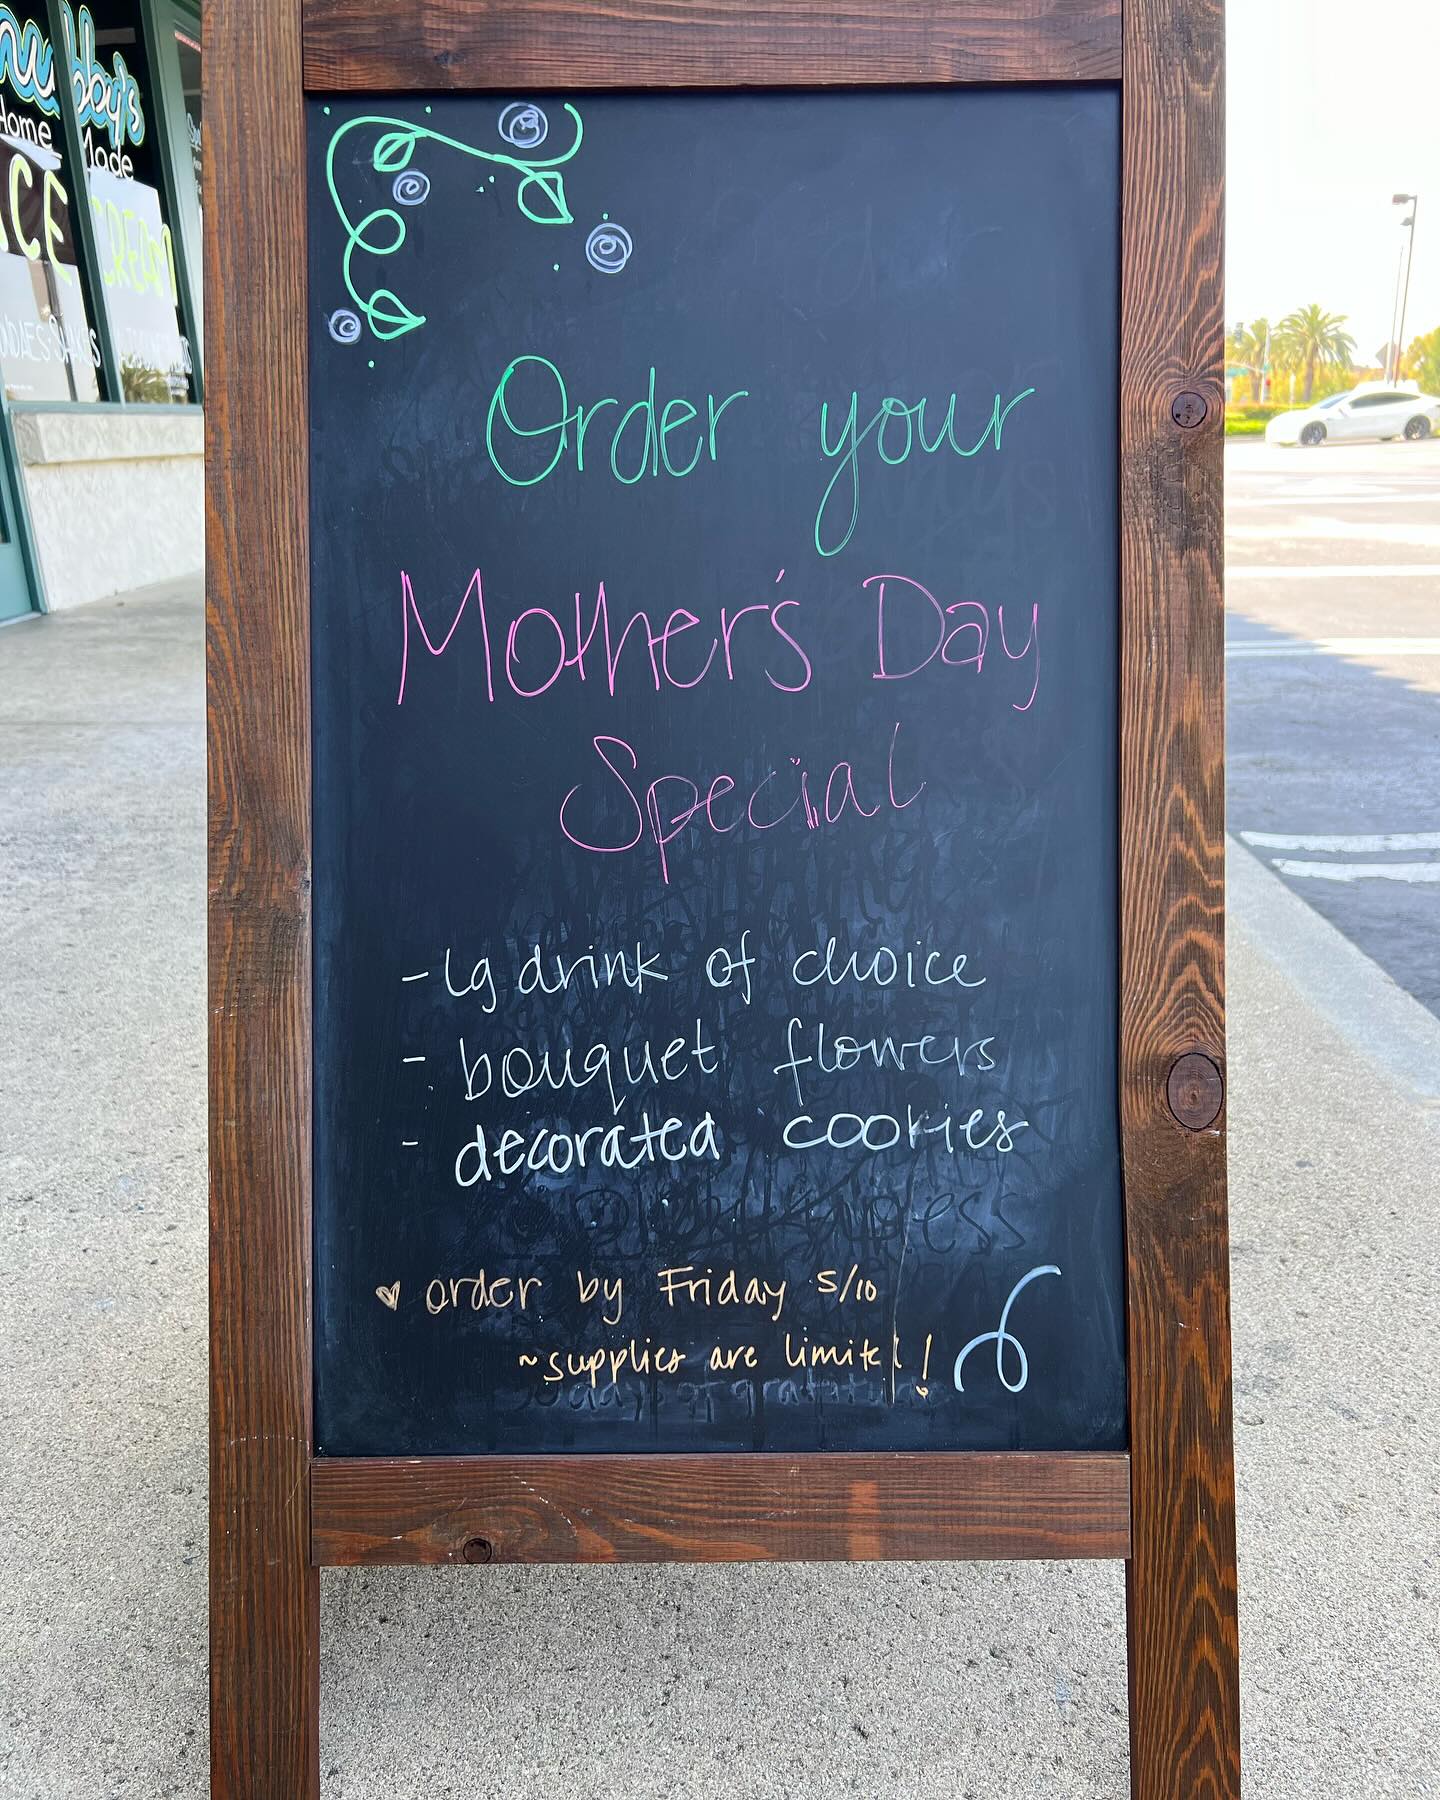 Order your
Mother's Day
Special
- lg drink of choice
- bouquet flowers
- decorated cookies
♥ order by Friday 5/10
~supplies are limited!
Home Made
ICE CREAM